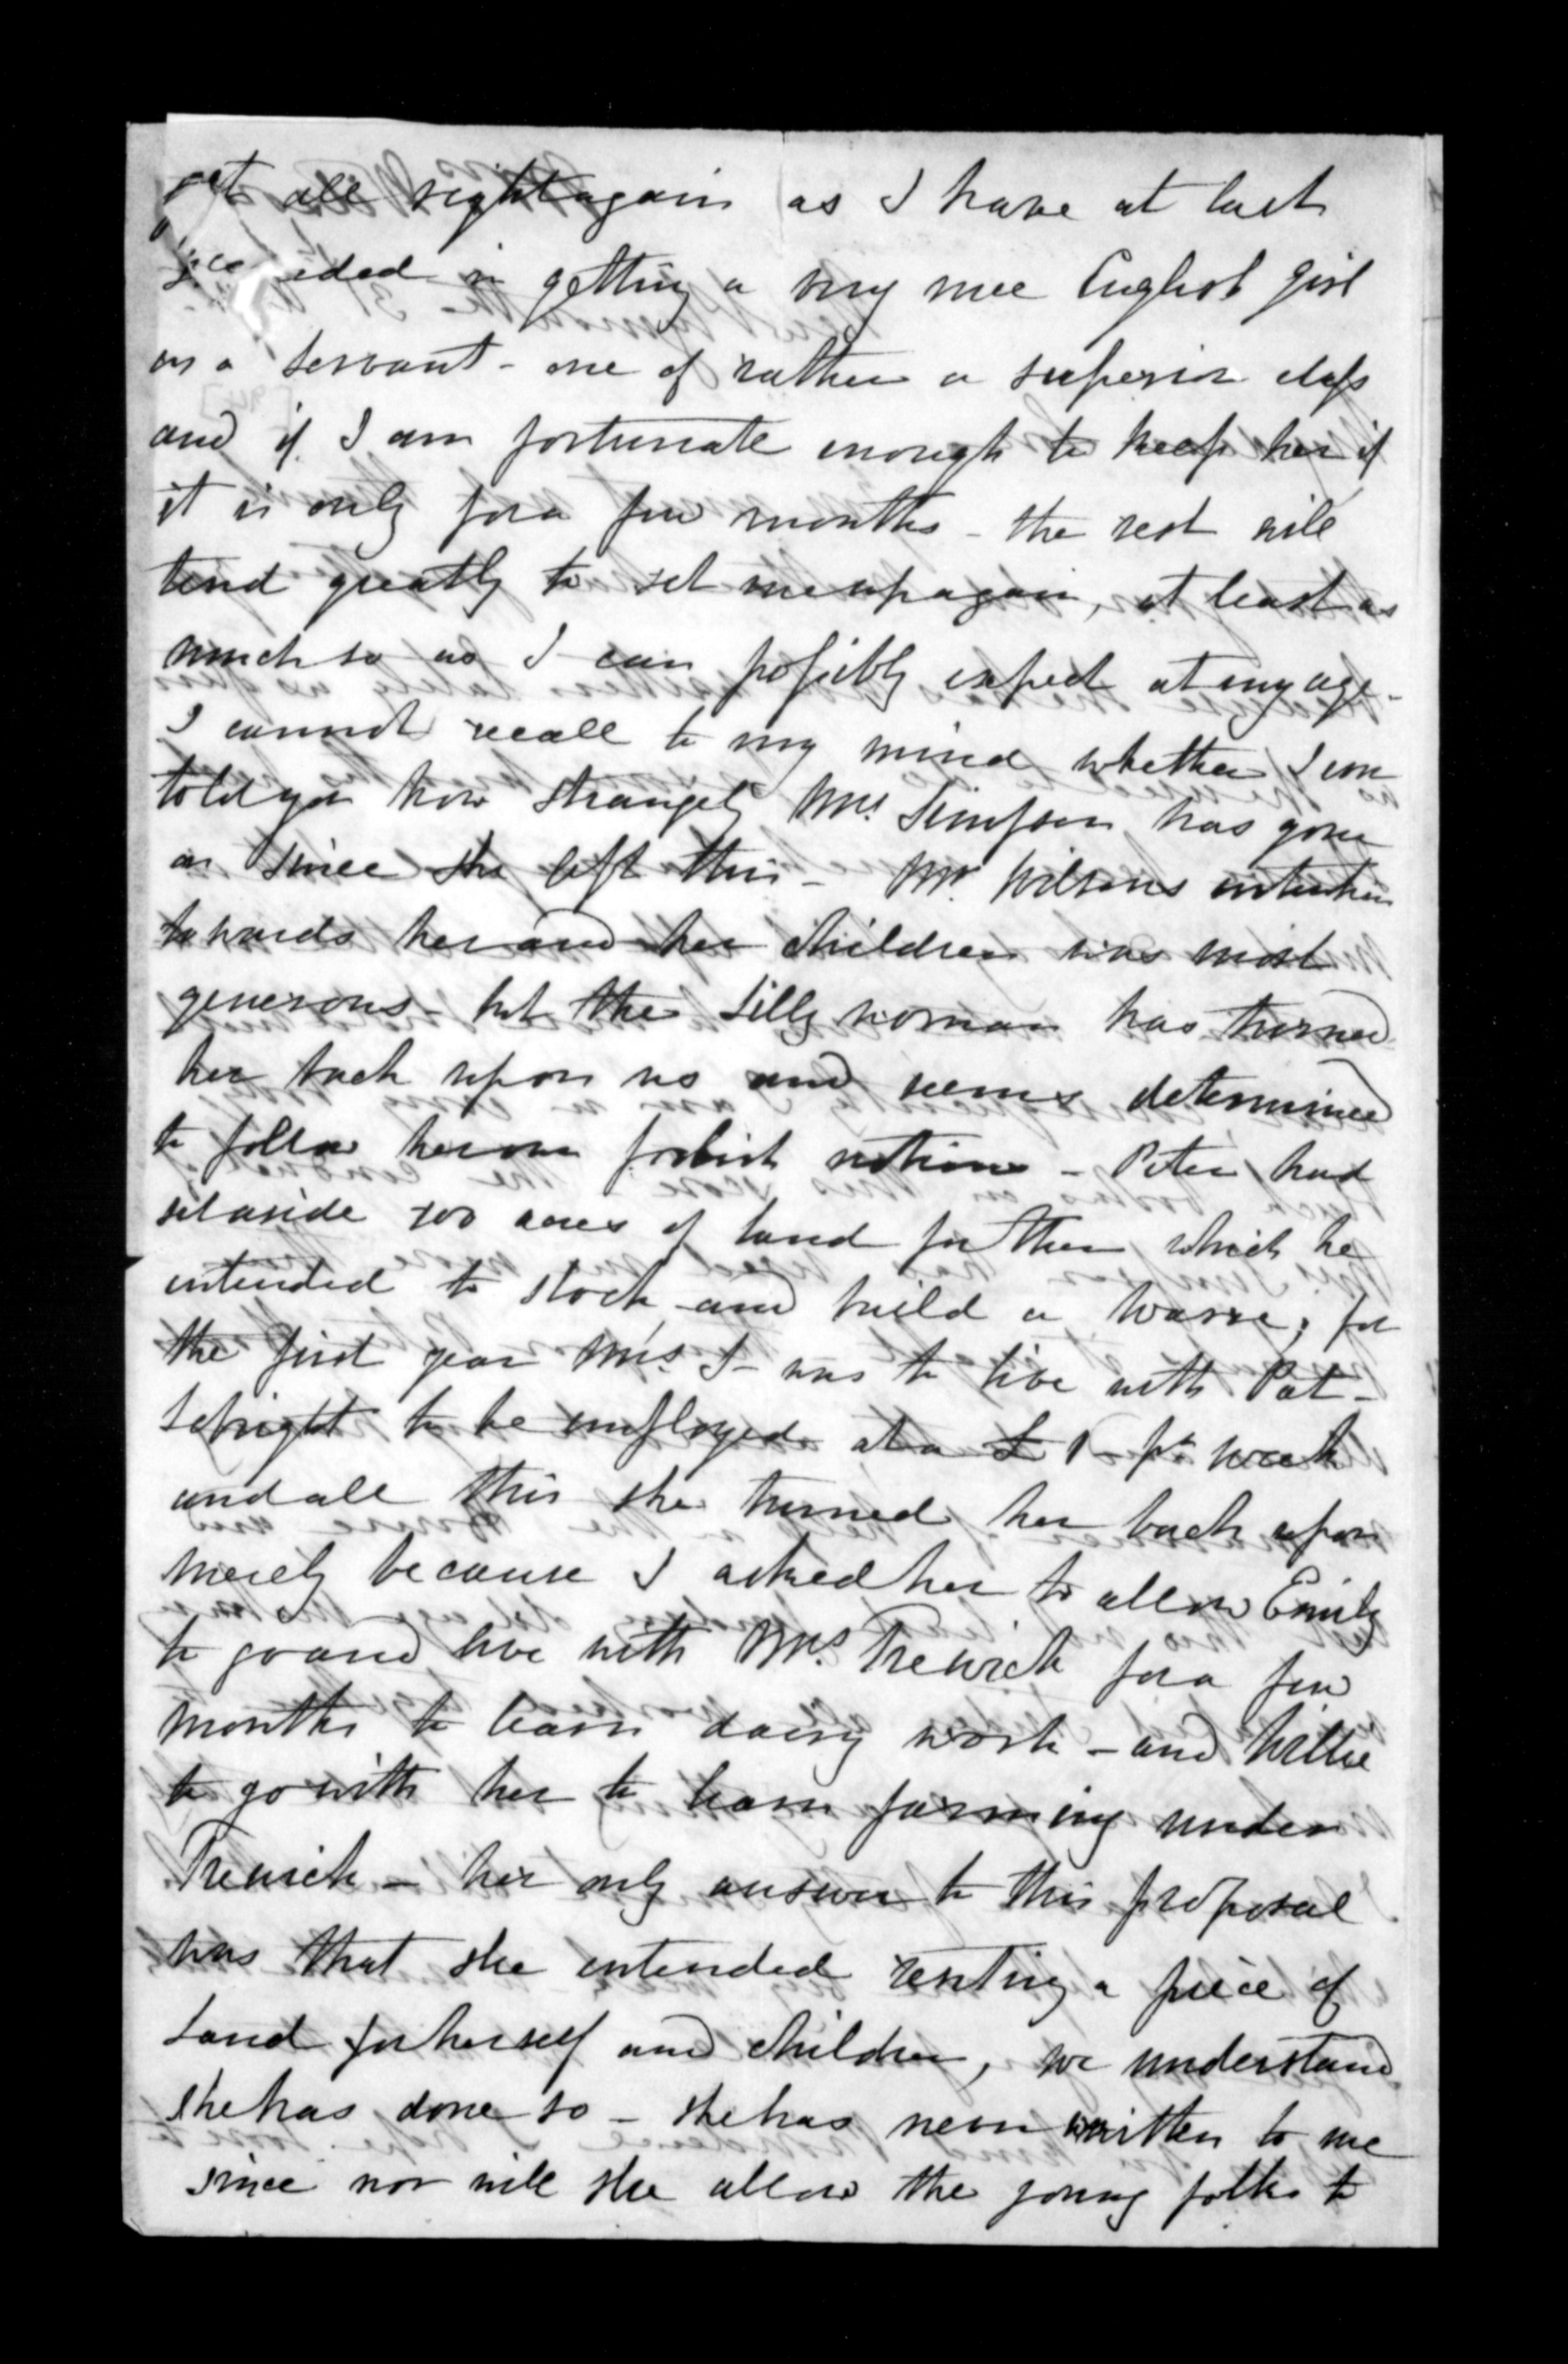 get all right again as I have at last
succeeded in getting a very nice English girl
as a servant - one of rather a superior class
and if I am fortunate enough to keep her if
it is only for a few months - the rest will
tend greatly to set me up again, at least as
much so as I can possibly expect at my age -
I cannot recall to my mind whether I ever
told you how strangely Mrs. Simpson has gone
on since she left this - Mr Wilsons intention
towards her and her children was most
generous - but the silly woman has turned
her back upon us and seems determined
to follow her own foolish notions - Peter had
set aside 100 acres of land for them which he
intended to stock and build a warre, for
the first year Mrs. S- was to live with Pat -
to be employed at a £1 - pr week
and all this she turned her back upon
merely because I asked her to allow Emily
to go and live with Mrs. Trewick for a few
months to learn dairy work - and Willie
to go with her to learn farming under
Trewick - her only answer to this proposal
was that she intended renting a piece of
Land for herself and children, we understand
she has done so - she has never written to me
since nor will she allow the young folks to